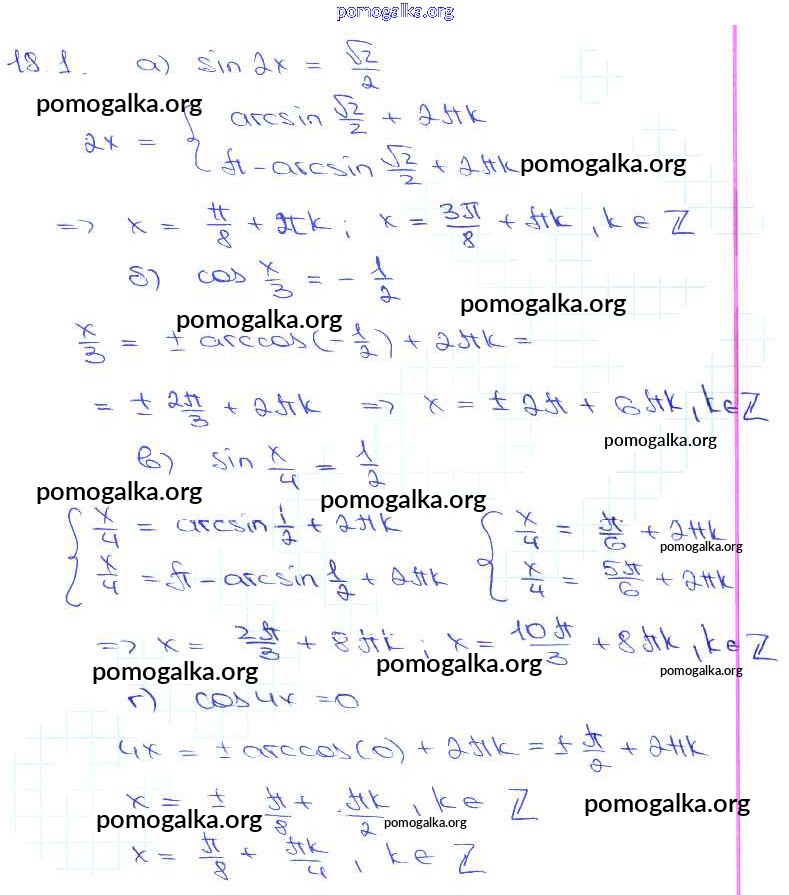 pomogalka.org
18.1. а) sin 2x = √2/2
pomogalka.org
2x = { arcsin √2/2 + 2πk
π - arcsin √2/2 + 2πk pomogalka.org
=> x = π/8 + πk; x = 3π/8 + πk, k ∈ ℤ
б) cos x/3 = - 1/2
pomogalka.org
pomogalka.org
x/3 = ± arccos(-1/2) + 2πk =
= ± 2π/3 + 2πk => x = ± 2π + 6πk, k ∈ ℤ
pomogalka.org
в) sin x/4 = 1/2
pomogalka.org pomogalka.org
{ x/4 = arcsin 1/2 + 2πk { x/4 = π/6 + 2πk
pomogalka.org
x/4 = π - arcsin 1/2 + 2πk x/4 = 5π/6 + 2πk
=> x = 2π/3 + 8πk; x = 10π/3 + 8πk, k ∈ ℤ
pomogalka.org pomogalka.org pomogalka.org
г) cos 4x = 0
4x = ± arccos(0) + 2πk = ± π/2 + 2πk
x = ± π/8 + πk/2, k ∈ ℤ
pomogalka.org pomogalka.org pomogalka.org
x = π/8 + πk/4, k ∈ ℤ